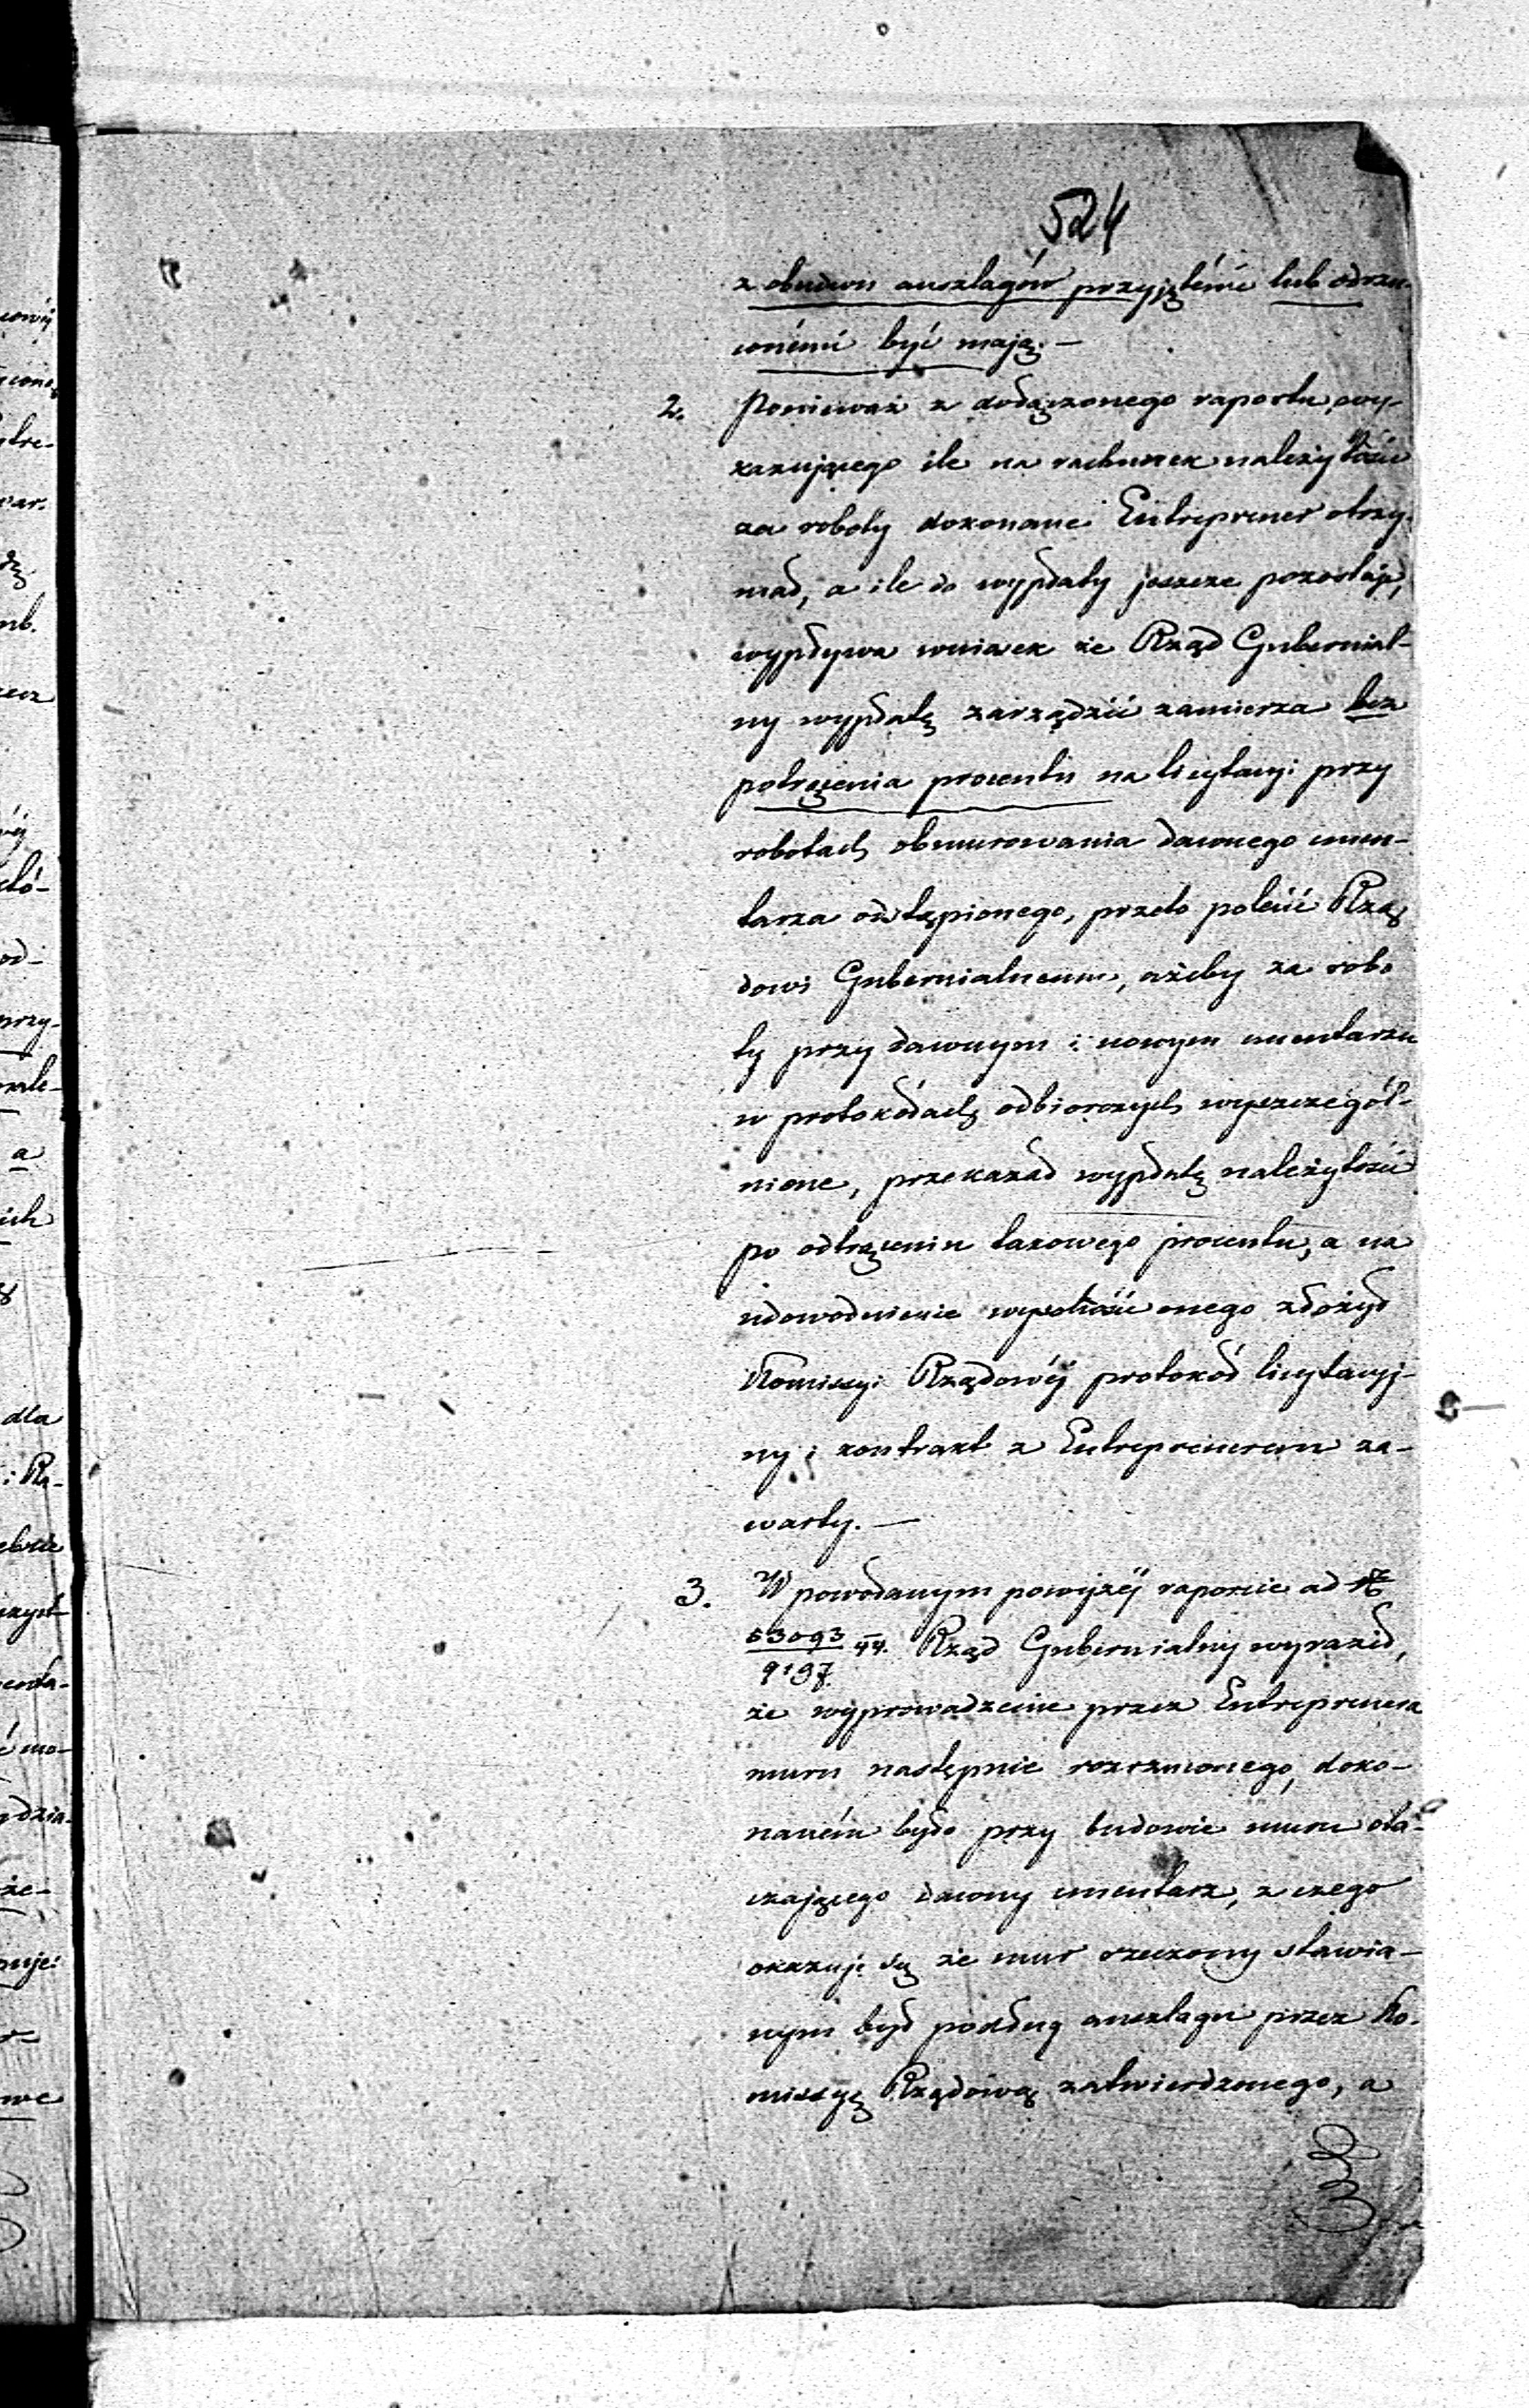 524
z obudwu anszlagów przyjętémi lub odrzu-
conémi być mają. —
2. Ponieważ z dołączonego raportu, wy-
kazującego ile na rachunek należytości
za roboty dokonane Entreprener otrzy-
mał, a ile do wypłaty jeszcze pozostaje,
wypływa wniosek że Rząd Gubernial-
ny wypłatę zarządzić zamierza bez
potrącenia procentu na licytacyi przy
robotach obmurowania dawnego cmen-
tarza odstąpionego, przeto polecić Rzą
dowi Gubernialnemu, ażeby za robo
ty przy dawnym i nowym cmentarzu
w protokółach odbiorczych wyszczegól-
nione, przekazał wypłatę należytości
po odtrąceniu takowego procentu, a na
udowodnienie wysokości onego złożył
Komissyi Rządowéj protokół licytacyj-
ny i kontrakt z Entreprenerem za-
warty. —
3. W powołanym powyżéj raporcie ad №
63093/9197 44. Rząd Gubernialny wyraził,
że wyprowadzenie przez Entreprenera
muru następnie rozrzuconego, doko-
naném było przy budowie muru ota-
czającego dawny cmentarz, z czego
okazuje się że mur rzeczony stawia-
nym był podług anszlagu przez Ko-
missyę Rządową zatwierdzonego, a